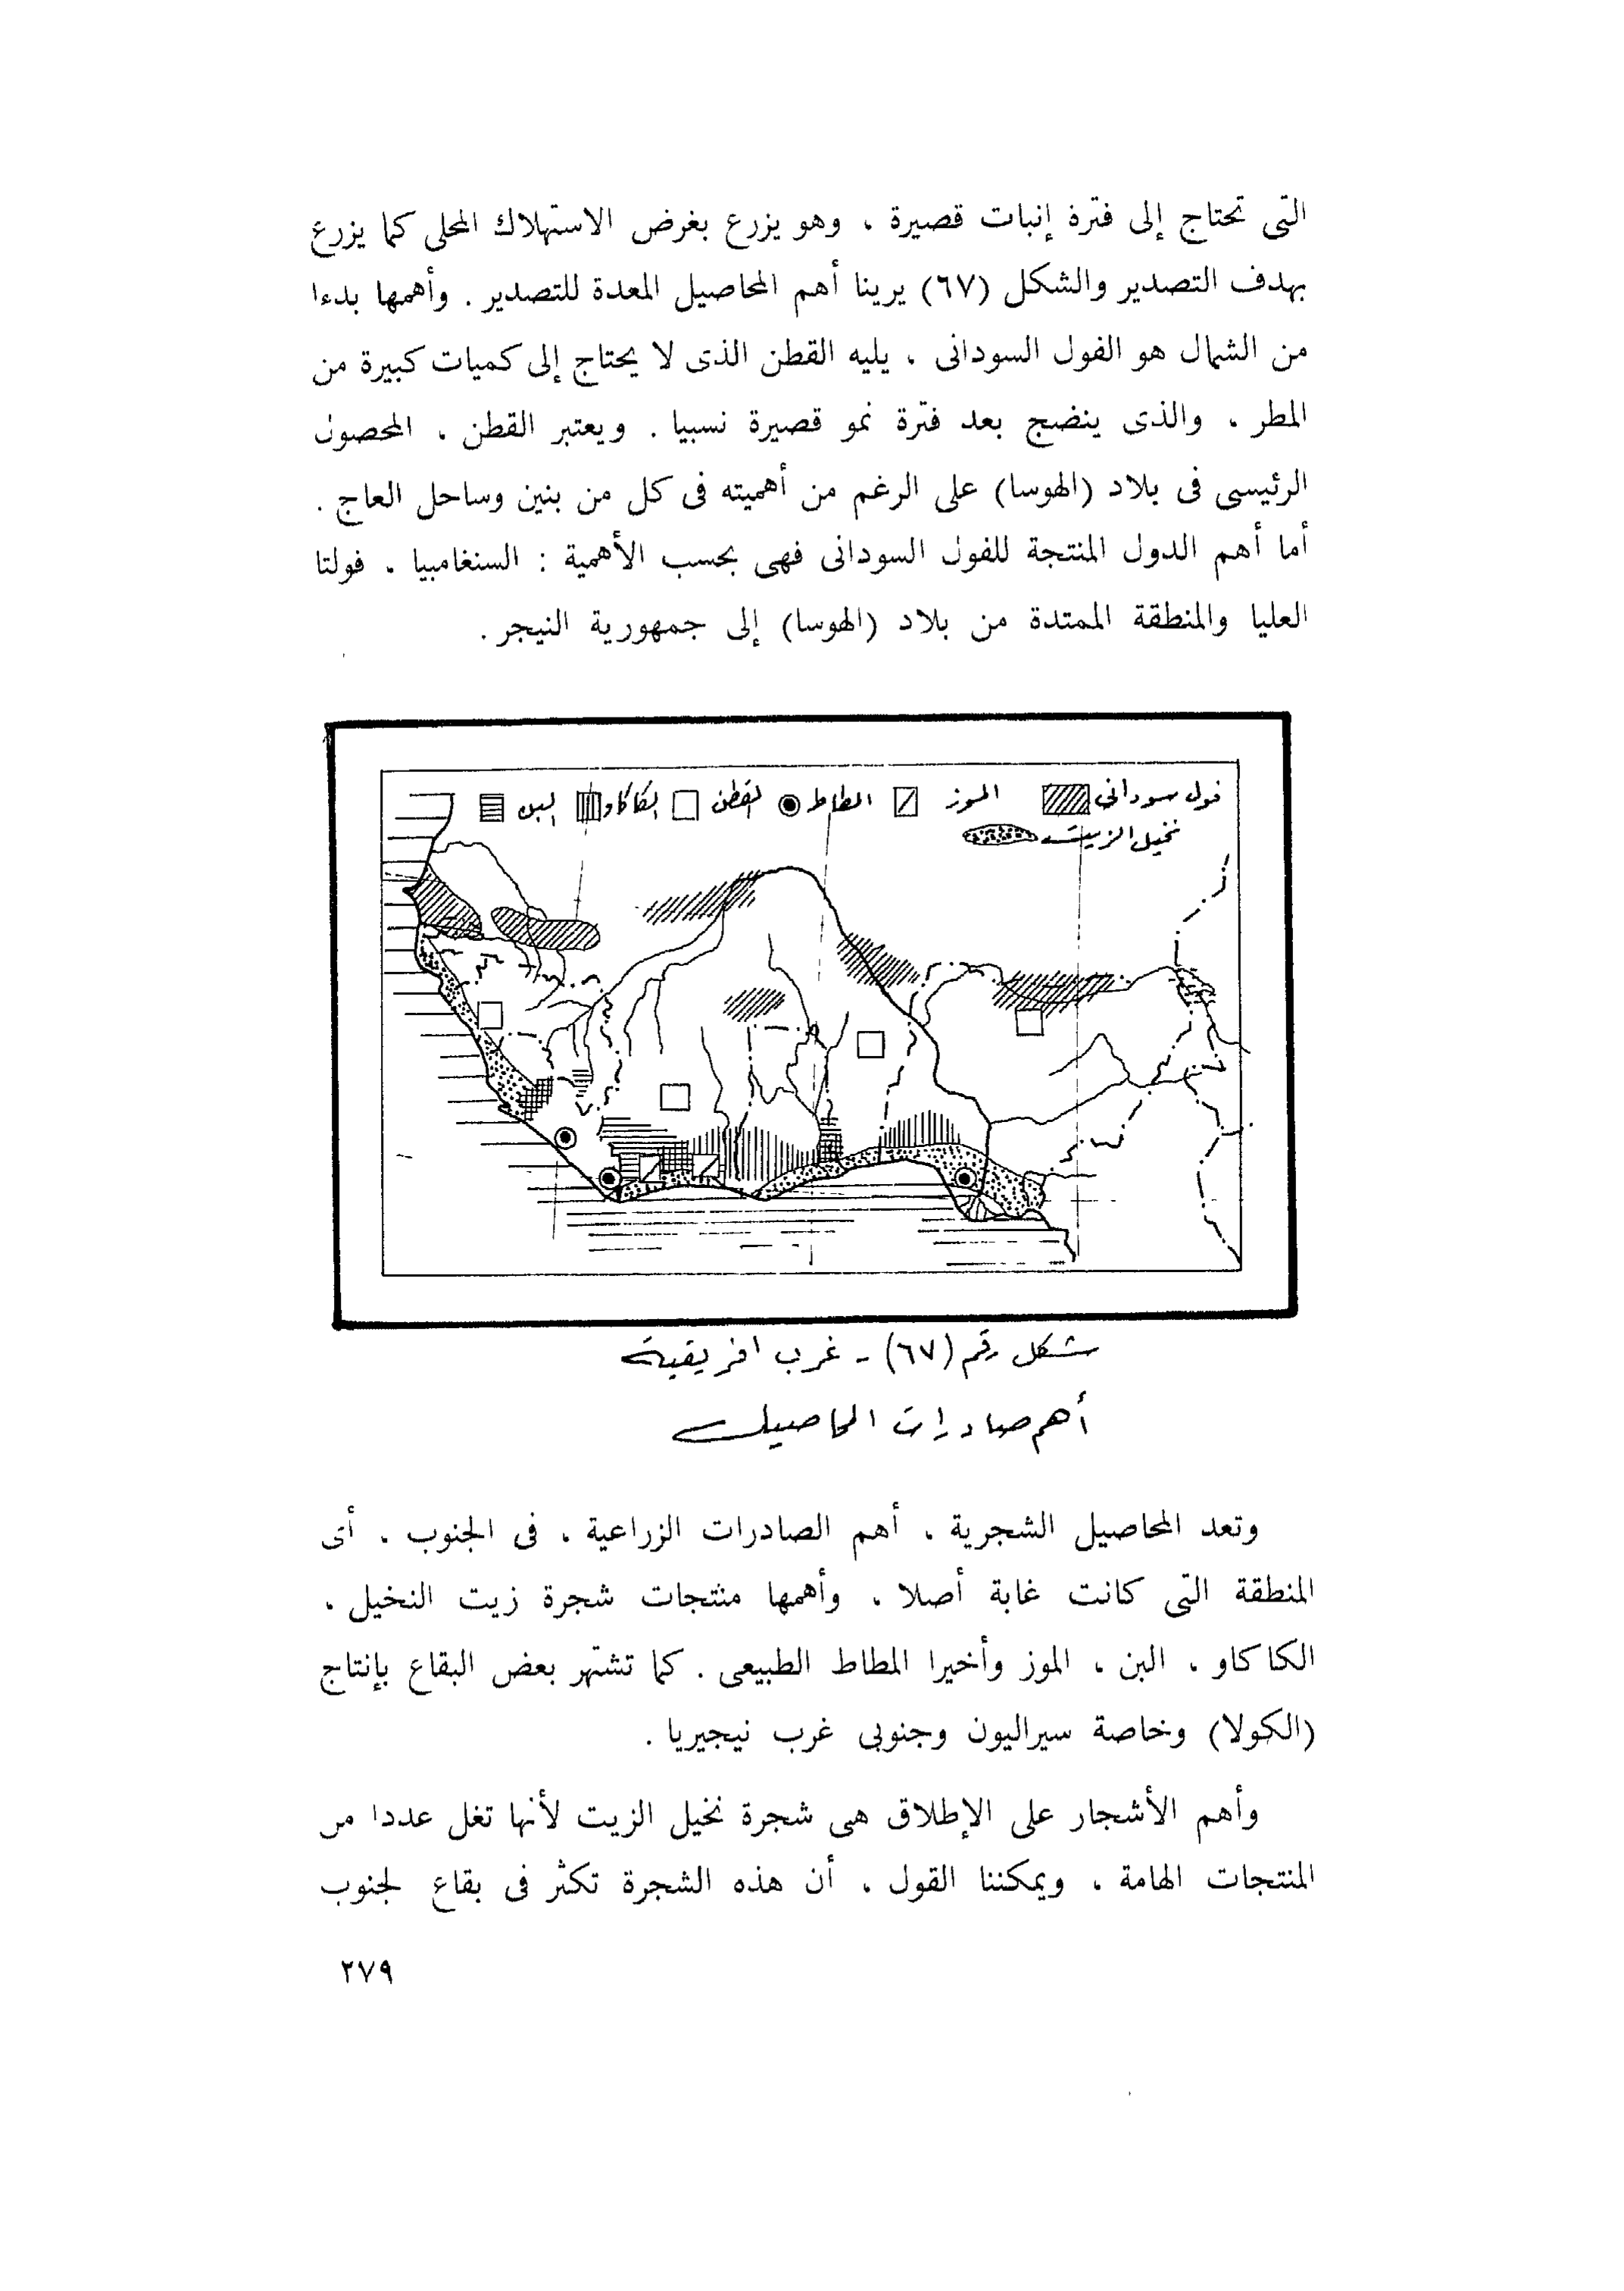 التى تحتاج إلى فترة إنبات قصيرة ، وهو يزرع بغرض الاستهلاك المحلى كما يزرع
بهدف التصدير والشكل (٦٧) يرينا أهم المحاصيل المعدة للتصدير . وأهمها بدءا
من الشمال هو الفول السودانى ، يليه القطن الذى لا يحتاج إلى كميات كبيرة من
المطر ، والذى ينضج بعد فترة نمو قصيرة نسبيا . ويعتبر القطن ، المحصول
الرئيسى فى بلاد (الهوسا) على الرغم من أهميته فى كل من بنين وساحل العاج .
أما أهم الدول المنتجة للفول السودانى فهى بحسب الأهمية : السنغامبيا ، فولتا
العليا والمنطقة الممتدة من بلاد (الهوسا) إلى جمهورية النيجر .
فول سودانى الموز المطاط القطن الكاكاو البن
نخيل الزيت
شكل رقم (٦٧) - غرب افريقية
أهم صادرات المحاصيل
وتعد المحاصيل الشجرية ، أهم الصادرات الزراعية ، فى الجنوب ، أى
المنطقة التى كانت غابة أصلا ، وأهمها منتجات شجرة زيت النخيل ،
الكاكاو ، البن ، الموز وأخيرا المطاط الطبيعى . كما تشتهر بعض البقاع بإنتاج
(الكولا) وخاصة سيراليون وجنوبى غرب نيجيريا .
وأهم الأشجار على الإطلاق هى شجرة نخيل الزيت لأنها تغل عددا من
المنتجات الهامة ، ويمكننا القول ، أن هذه الشجرة تكثر فى بقاع لجنوب
٢٧٩